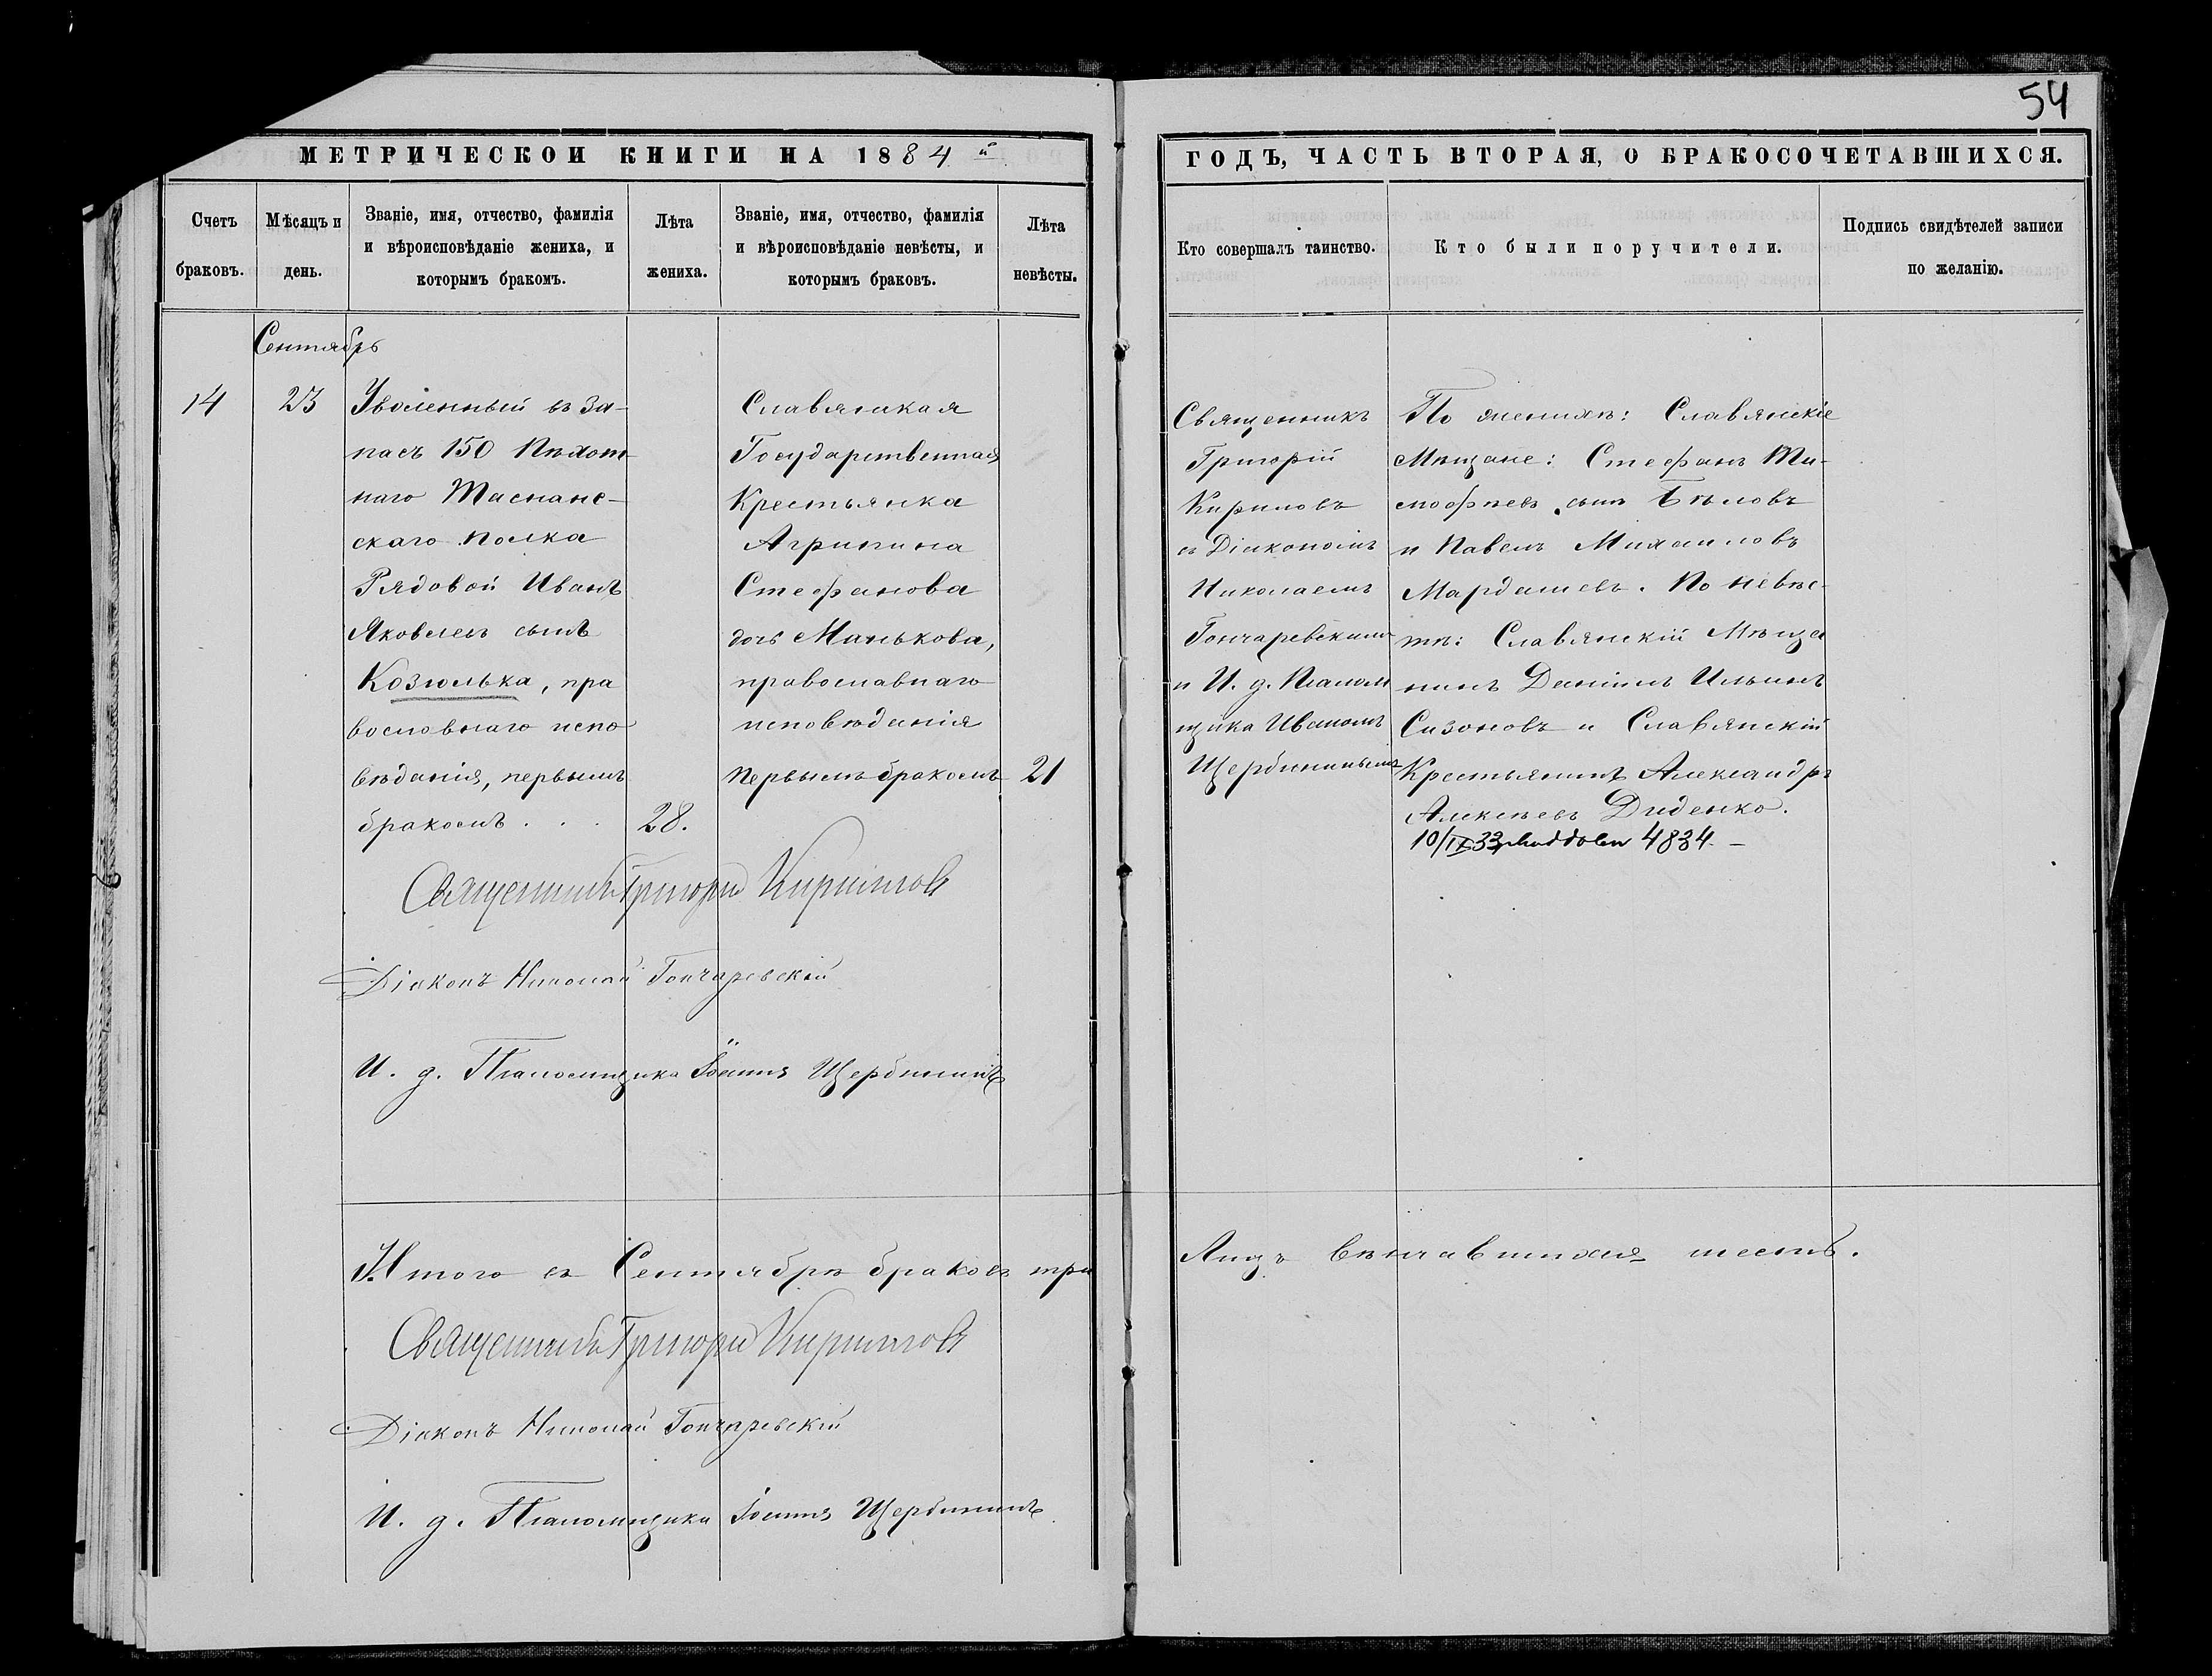 54
МЕТРИЧЕСКОИ КНИГИ НА 1884й
ГОДЪ, ЧАСТЬ ВТОРАЯ, О БРАКОСОЧЕТАВШИХСЯ.
Счетъ
браковъ.
Мѣсяцъ и
день.
Званіе, имя, отчество, фамилія
и вѣроисповѣданіе жениха, и
которымъ бракомъ.
Лѣта
жениха.
Званіе, имя, отчество, фамилія
и вѣроисповѣданіе невѣсты, и
которымъ браковъ.
Лѣта
невѣсты.
Кто совершалъ таинство.
Кто были поручители.
Подпись свидѣтелей записи
по желанію.
Сентябрь
14
23
Уволенный въ за-
пасъ 150 Пѣхот-
наго Таманс-
скаго полка
Рядовой Иванъ
Яковлевъ сынъ
Козюлька, пра
вославнаго испо
вѣданія, первымъ
бракомъ . . .
28.
Славянская
Государственная
Крестьянка
Агрипина
Стефанова
дочь Манькова,
православнаго
исповѣданія
первымъ бракомъ
21
Священникъ
Григорій
Кириловъ
съ Діакономъ
Николаемъ
Гончаревскимъ
и И. д. Псалом
щика Иваномъ
Щербининымъ
По женихѣ: Славянскіе
Мѣщане: Стефанъ Ти-
мофѣевъ сынъ Бѣловъ
и Павелъ Михаиловъ
Мардашевъ. По невѣс-
тѣ: Славянскій Мѣща
нинъ Даніилъ Ильинъ
Сазоновъ и Славянскій
Крестьянинъ Александръ
Алексѣевъ Диденко.
10/IX 33 4834. –
Священникъ Григорій Кириловъ
Діаконъ Николай Гончаревскій
И. д. Псаломщика Іоаннъ Щербининъ
Итого въ Сентябрѣ браковъ три
Лицъ вѣнчавшихся шесть.
Священникъ Григорій Кириловъ
Діаконъ Николай Гончаревскій
И. д. Псаломщика Іоаннъ Щербининъ